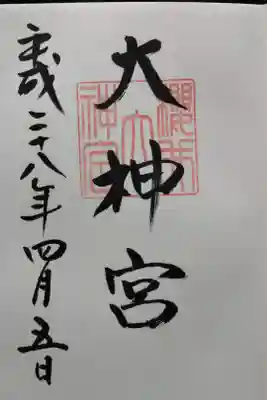 大神宮
平成二十八年四月五日